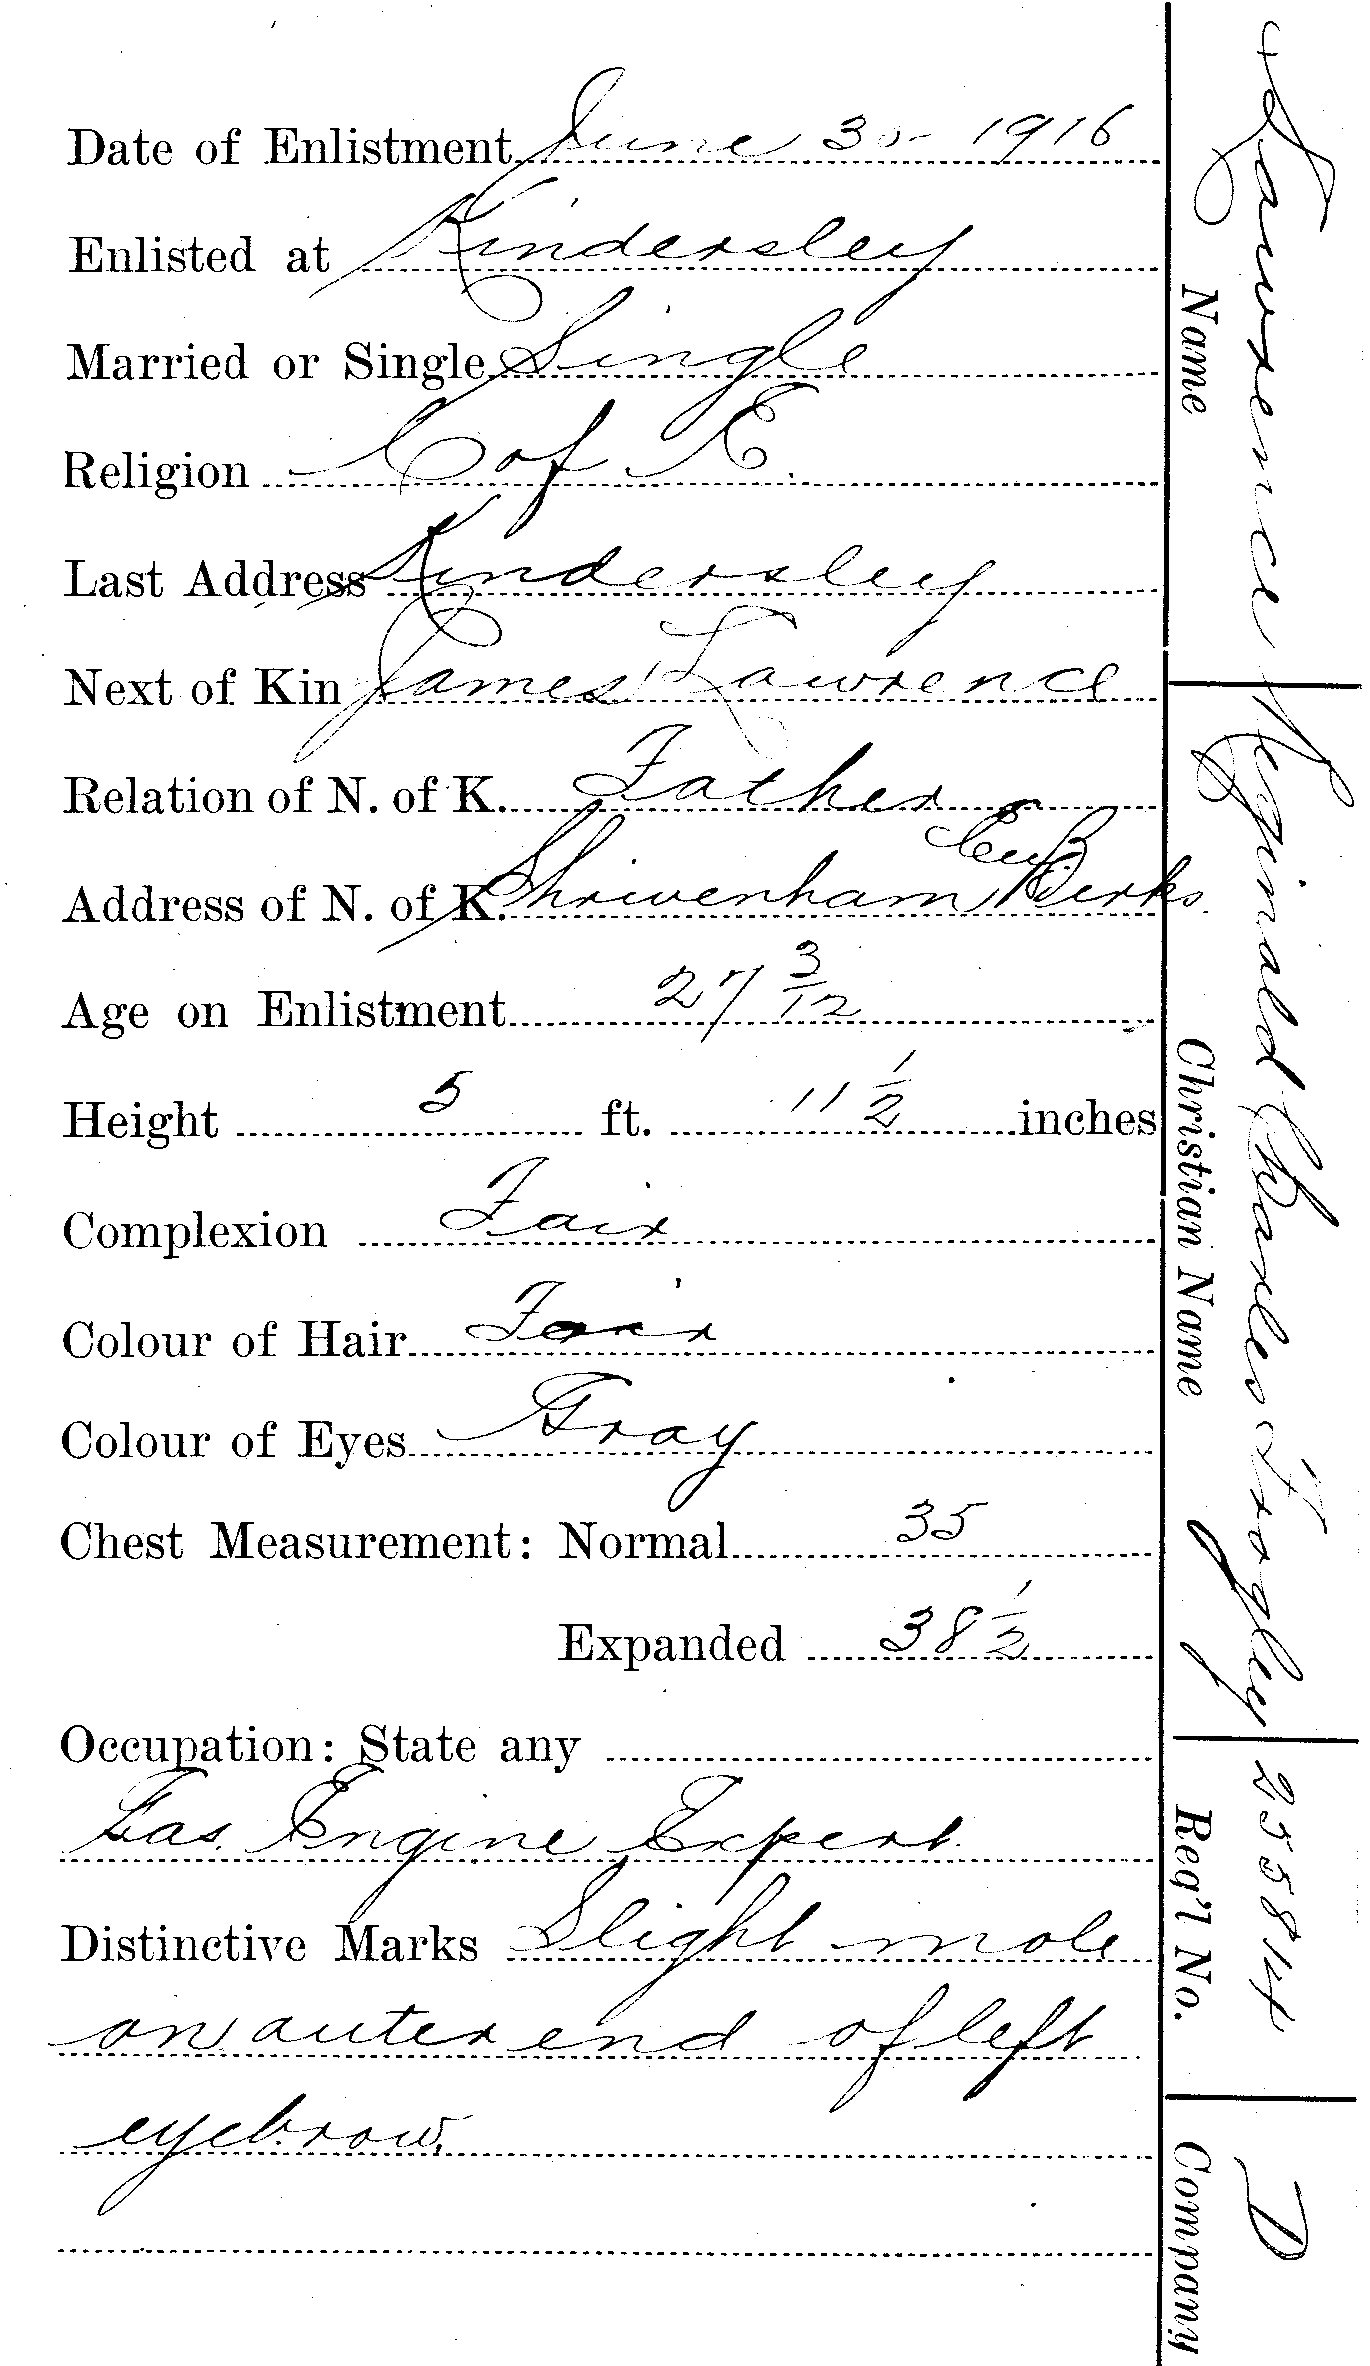 Date of Enlistment June 30 - 1916
Enlisted at Kindersley
Married or Single Single
Religion C of E.
Last Address Kindersley
Next of Kin James Lawrence
Relation of N. of K. Father
Eng
Address of N. of K. Shrivenham, Berks.
Age on Enlistment 27 3/12
Height 5 ft. 11 1/2 inches
Complexion Fair
Colour of Hair Fair
Colour of Eyes Gray
Chest Measurement: Normal 35
Expanded 38 1/2
Occupation: State any
Gas Engine Expert
Distinctive Marks Slight mole
on outer end of left
eyebrow.
Lawrence Reginald Charles 255814 D
Name Christian Name Reg'l No. Company